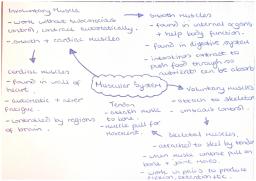 Involuntary Muscle
- work without subconscious
control, contract automatically.
- smooth + cardiac muscles
Smooth Muscles
- found in internal organs
+ help body function.
- found in digestive system
- intestines contract to
push food through so
nutrients can be absorb
Cardiac Muscles
- found in wall of
heart.
- automatic + never
fatigue.
- controlled by regions
of brain.
Muscular System
Tendon
- attach muscle
to bone.
- muscle pull for
movement.
Voluntary Muscles
- attach to skeleton
- conscious control.
Skeletal Muscles
- attached to skel by tendon
- when muscle contract pull on
bone + joint moves.
- work in pairs to produce